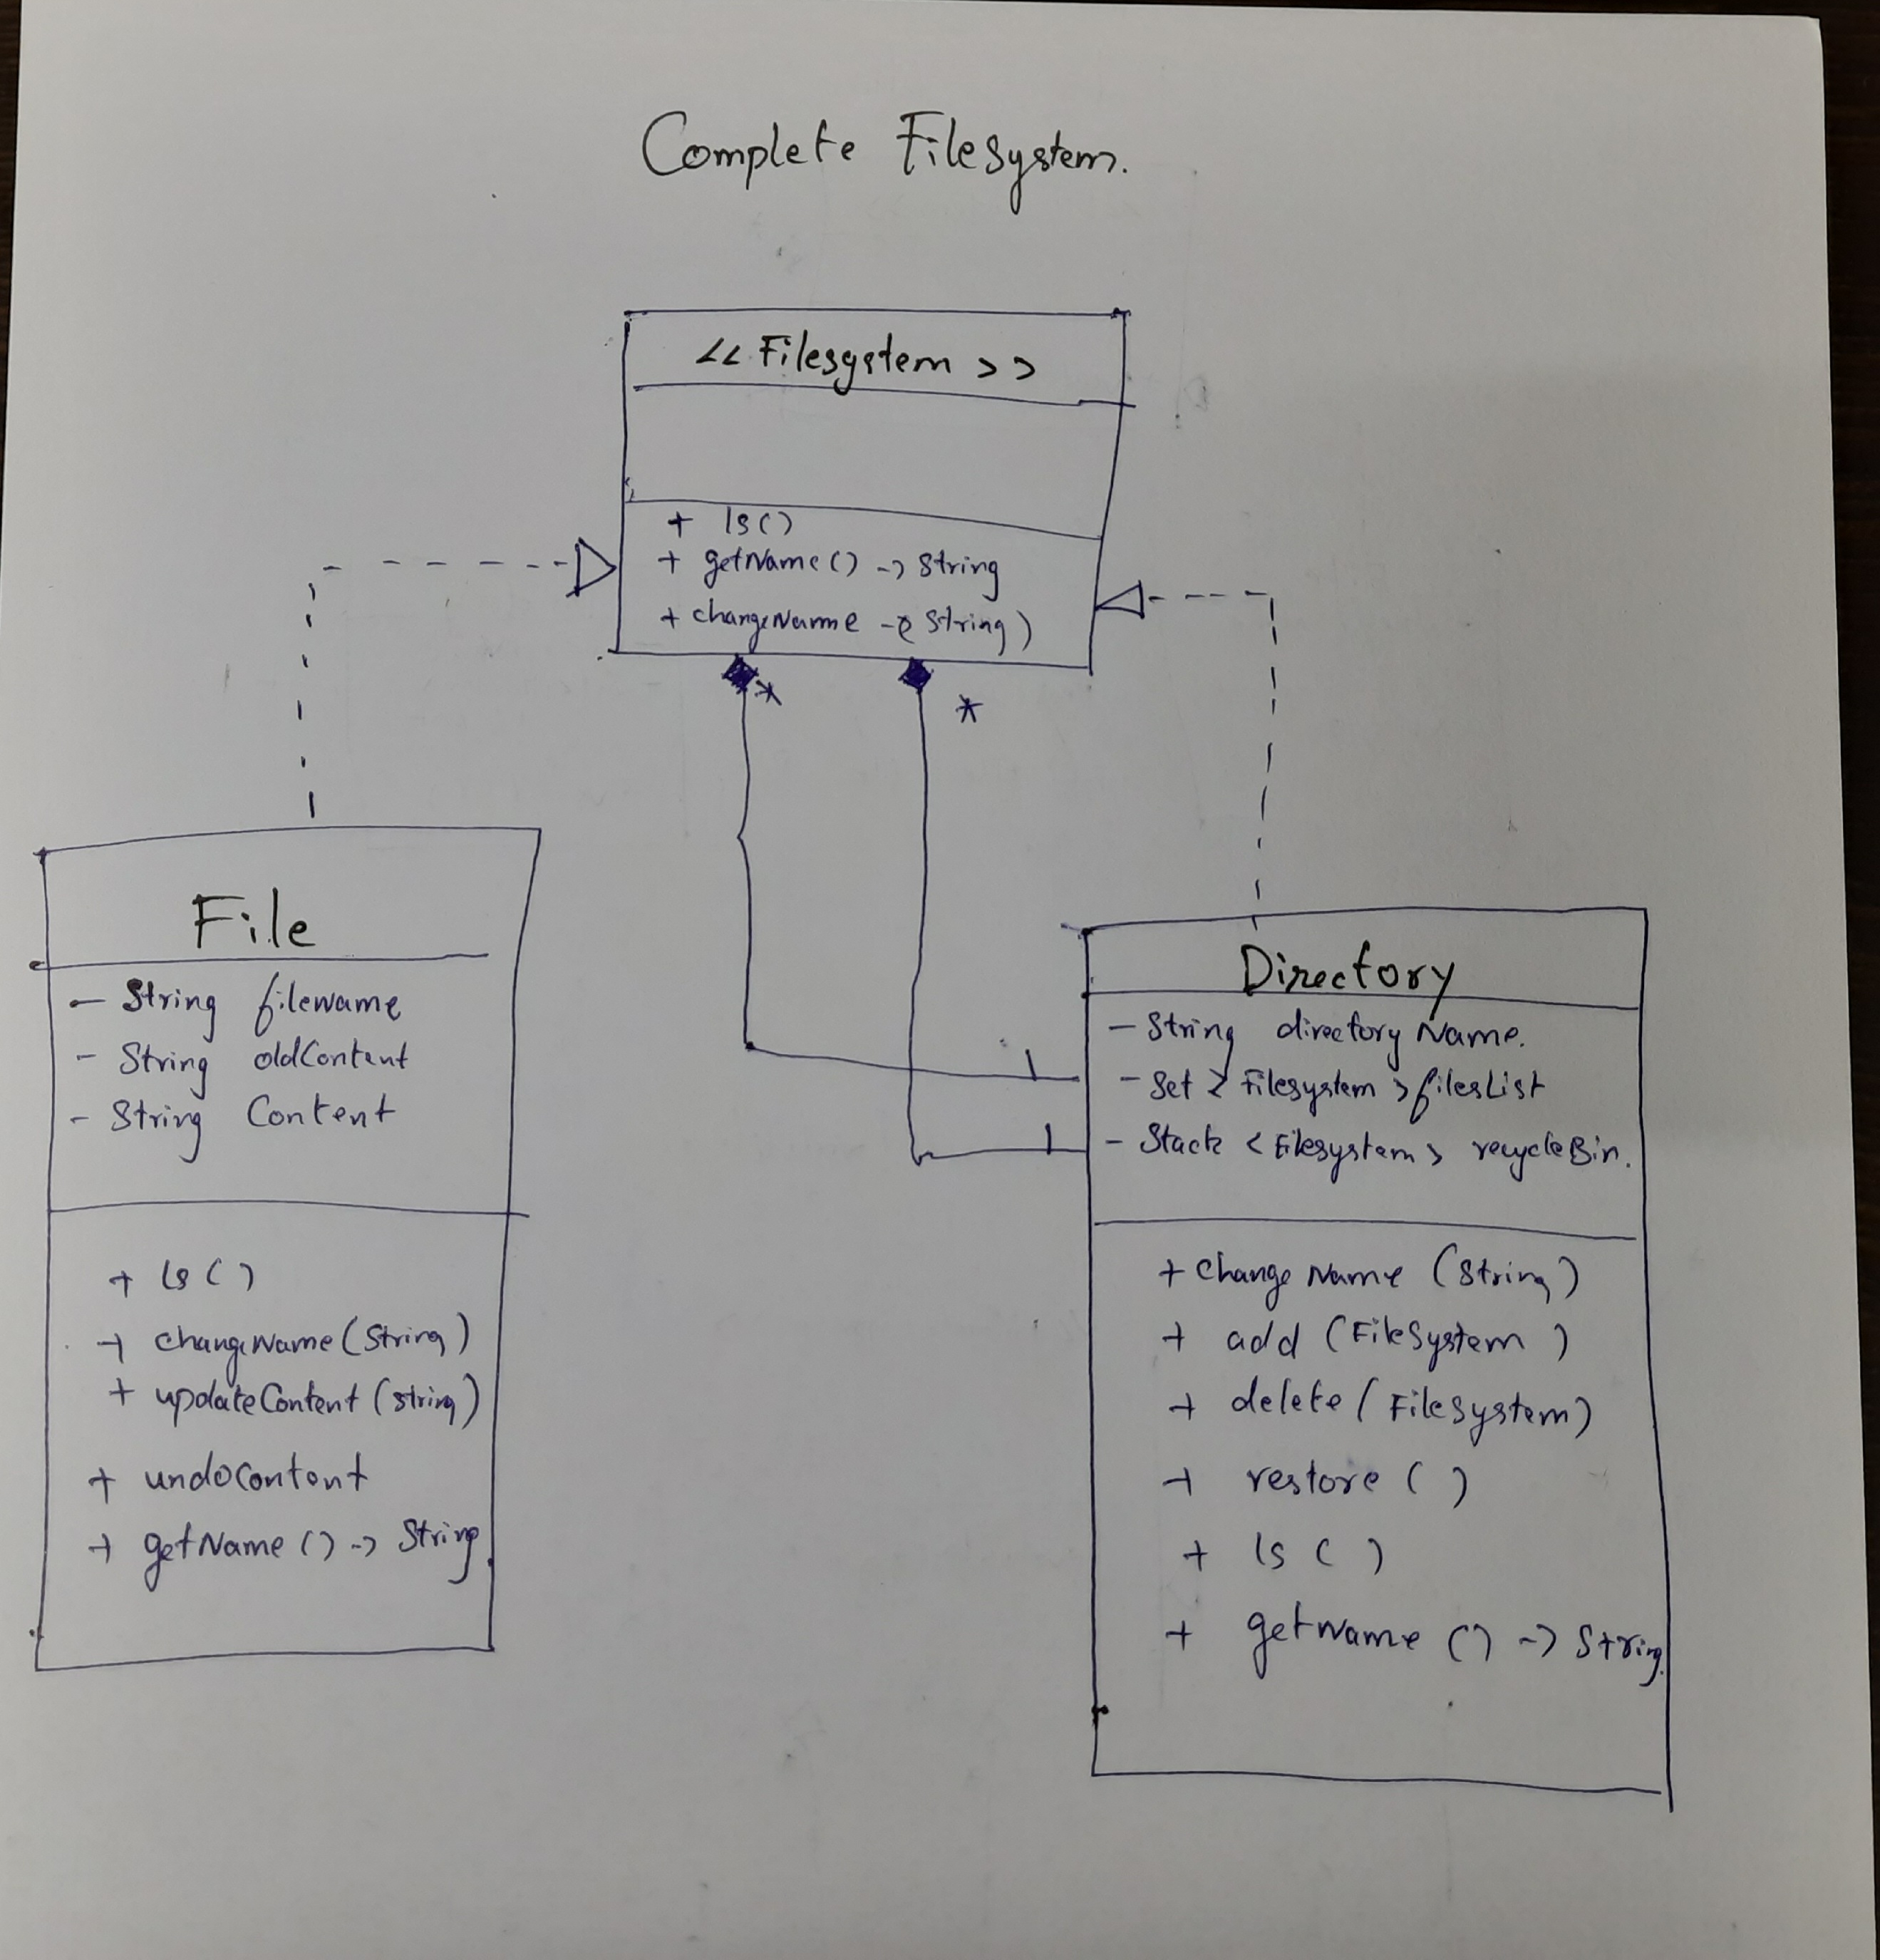 Complete Filesystem.
<< Filesystem >>
+ ls()
+ getName() -> String
+ changeName -( String)
*
*
File
- String filename
- String oldContent
- String Content
+ ls()
+ changeName(String)
+ updateContent(String)
+ undoContent
+ getName() -> String
1
1
Directory
- String directoryName.
- Set < Filesystem > filesList
- Stack < Filesystem > recycleBin.
+ changeName (String)
+ add (FileSystem )
+ delete( FileSystem)
+ restore ( )
+ ls ( )
+ getName () -> String.